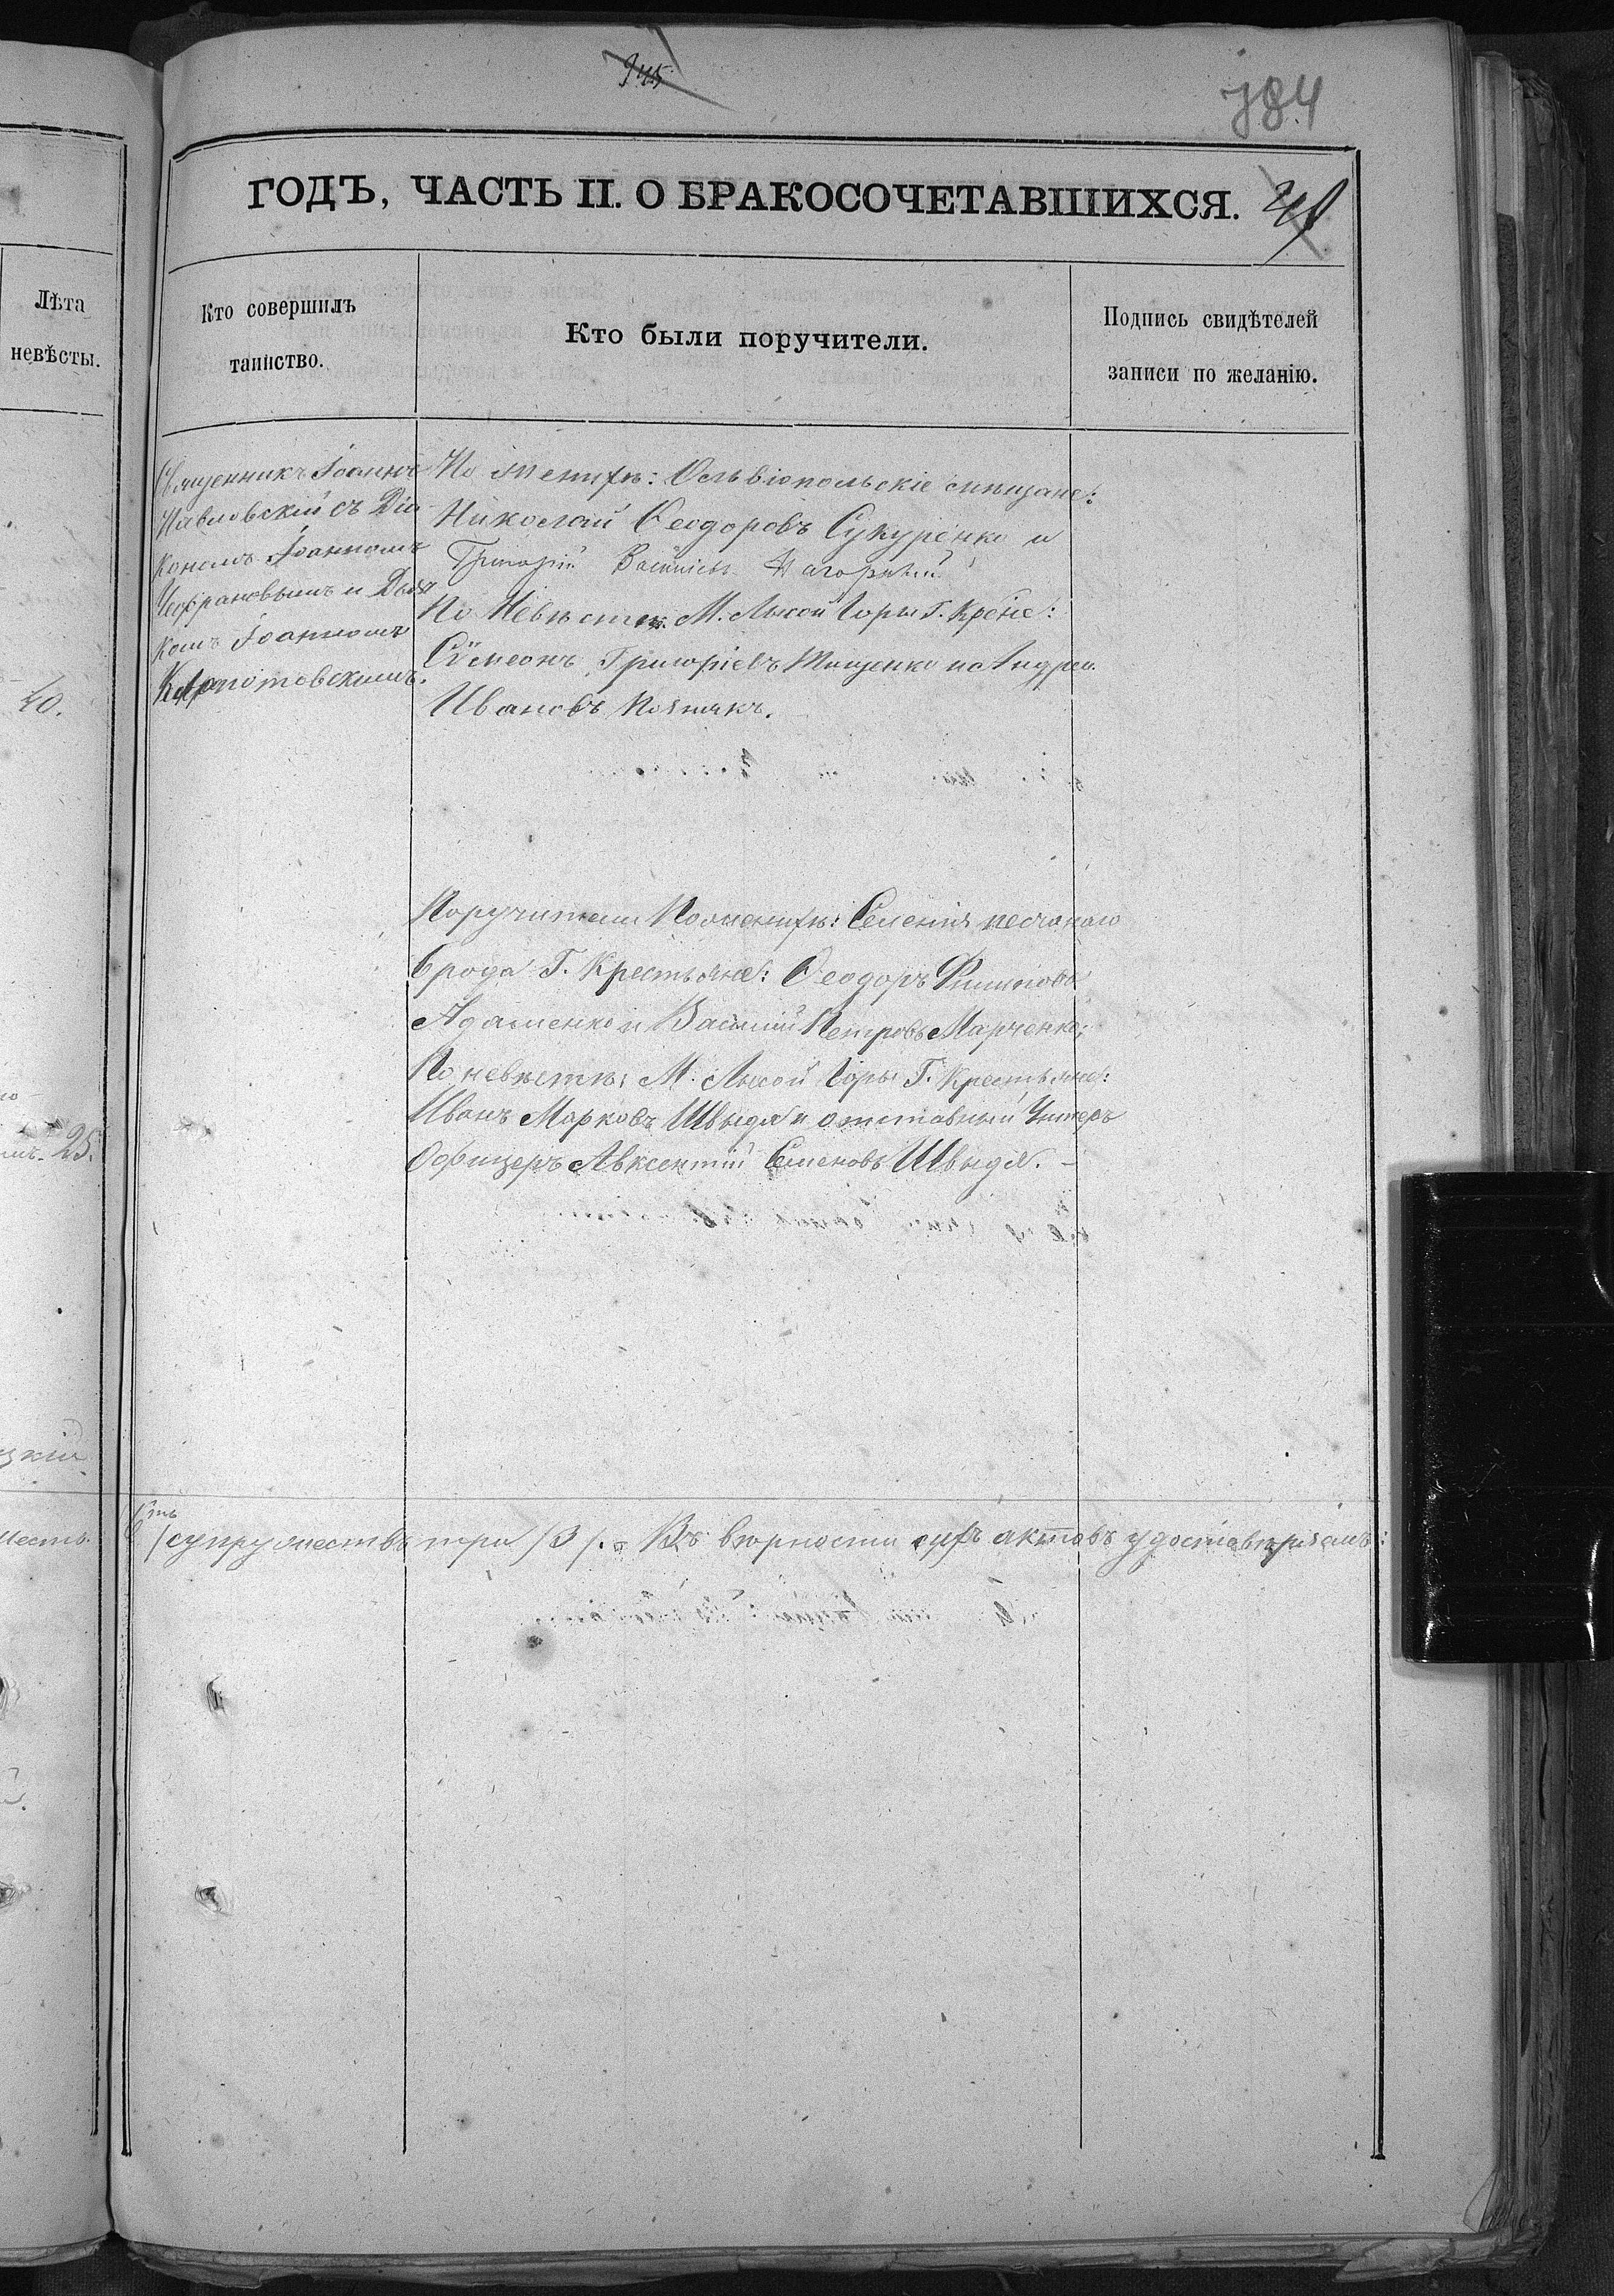 945
784
ГОДЪ, ЧАСТЬ II. О БРАКОСОЧЕТАВШИХСЯ.
Лѣта
невѣсты.
Кто совершилъ
таинство.
Кто были поручители.
Подпись свидѣтелей
записи по желанію.
Священникъ Іоаннъ
Павловскій съ Діа-
кономъ Іоанномъ
и Дья
комъ Іоанномъ
По женихѣ: Ольвіопольскіе мѣщане:
Николай Ѳеодоровъ Сукуренко и
Григорій Васильевъ Нагорный
По Невѣстѣ: М. Лысой Горы Г. Крѣне:
Сѵмеонъ Григоріевъ Тищенко и Андрей
Ивановъ
40.
Поручители По женихѣ: Селенія песчанаго
брода Г. Крестьяне: Ѳеодоръ Филиповъ
Адаменко и Василий Петровъ Марченко;
По невѣстѣ: М. Лысой Горы Г. Крестьяне:
Иванъ Марковъ Швыдя и отставный Унтеръ
Офицеръ Авксентій Семеновъ Швыдя. -
25.
цкій
честь.
супружествъ три /3/. Въ вѣрности сихъ актовъ удостовѣряемъ: